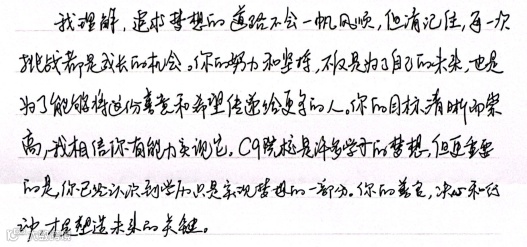 我理解，追求梦想的道路不会一帆风顺，但请记住，每一次
挑战都是成长的机会。你的努力和坚持，不仅是为了自己的未来，也是
为了能够将这份善意和希望传递给更多的人。你的目标清晰而崇
高，我相信你有能力实现它。C9院校是许多学子的梦想，但更重要
的是，你已经认识到学历只是实现梦想的一部分。你的善良，决心和行
动，才是塑造未来的关键。